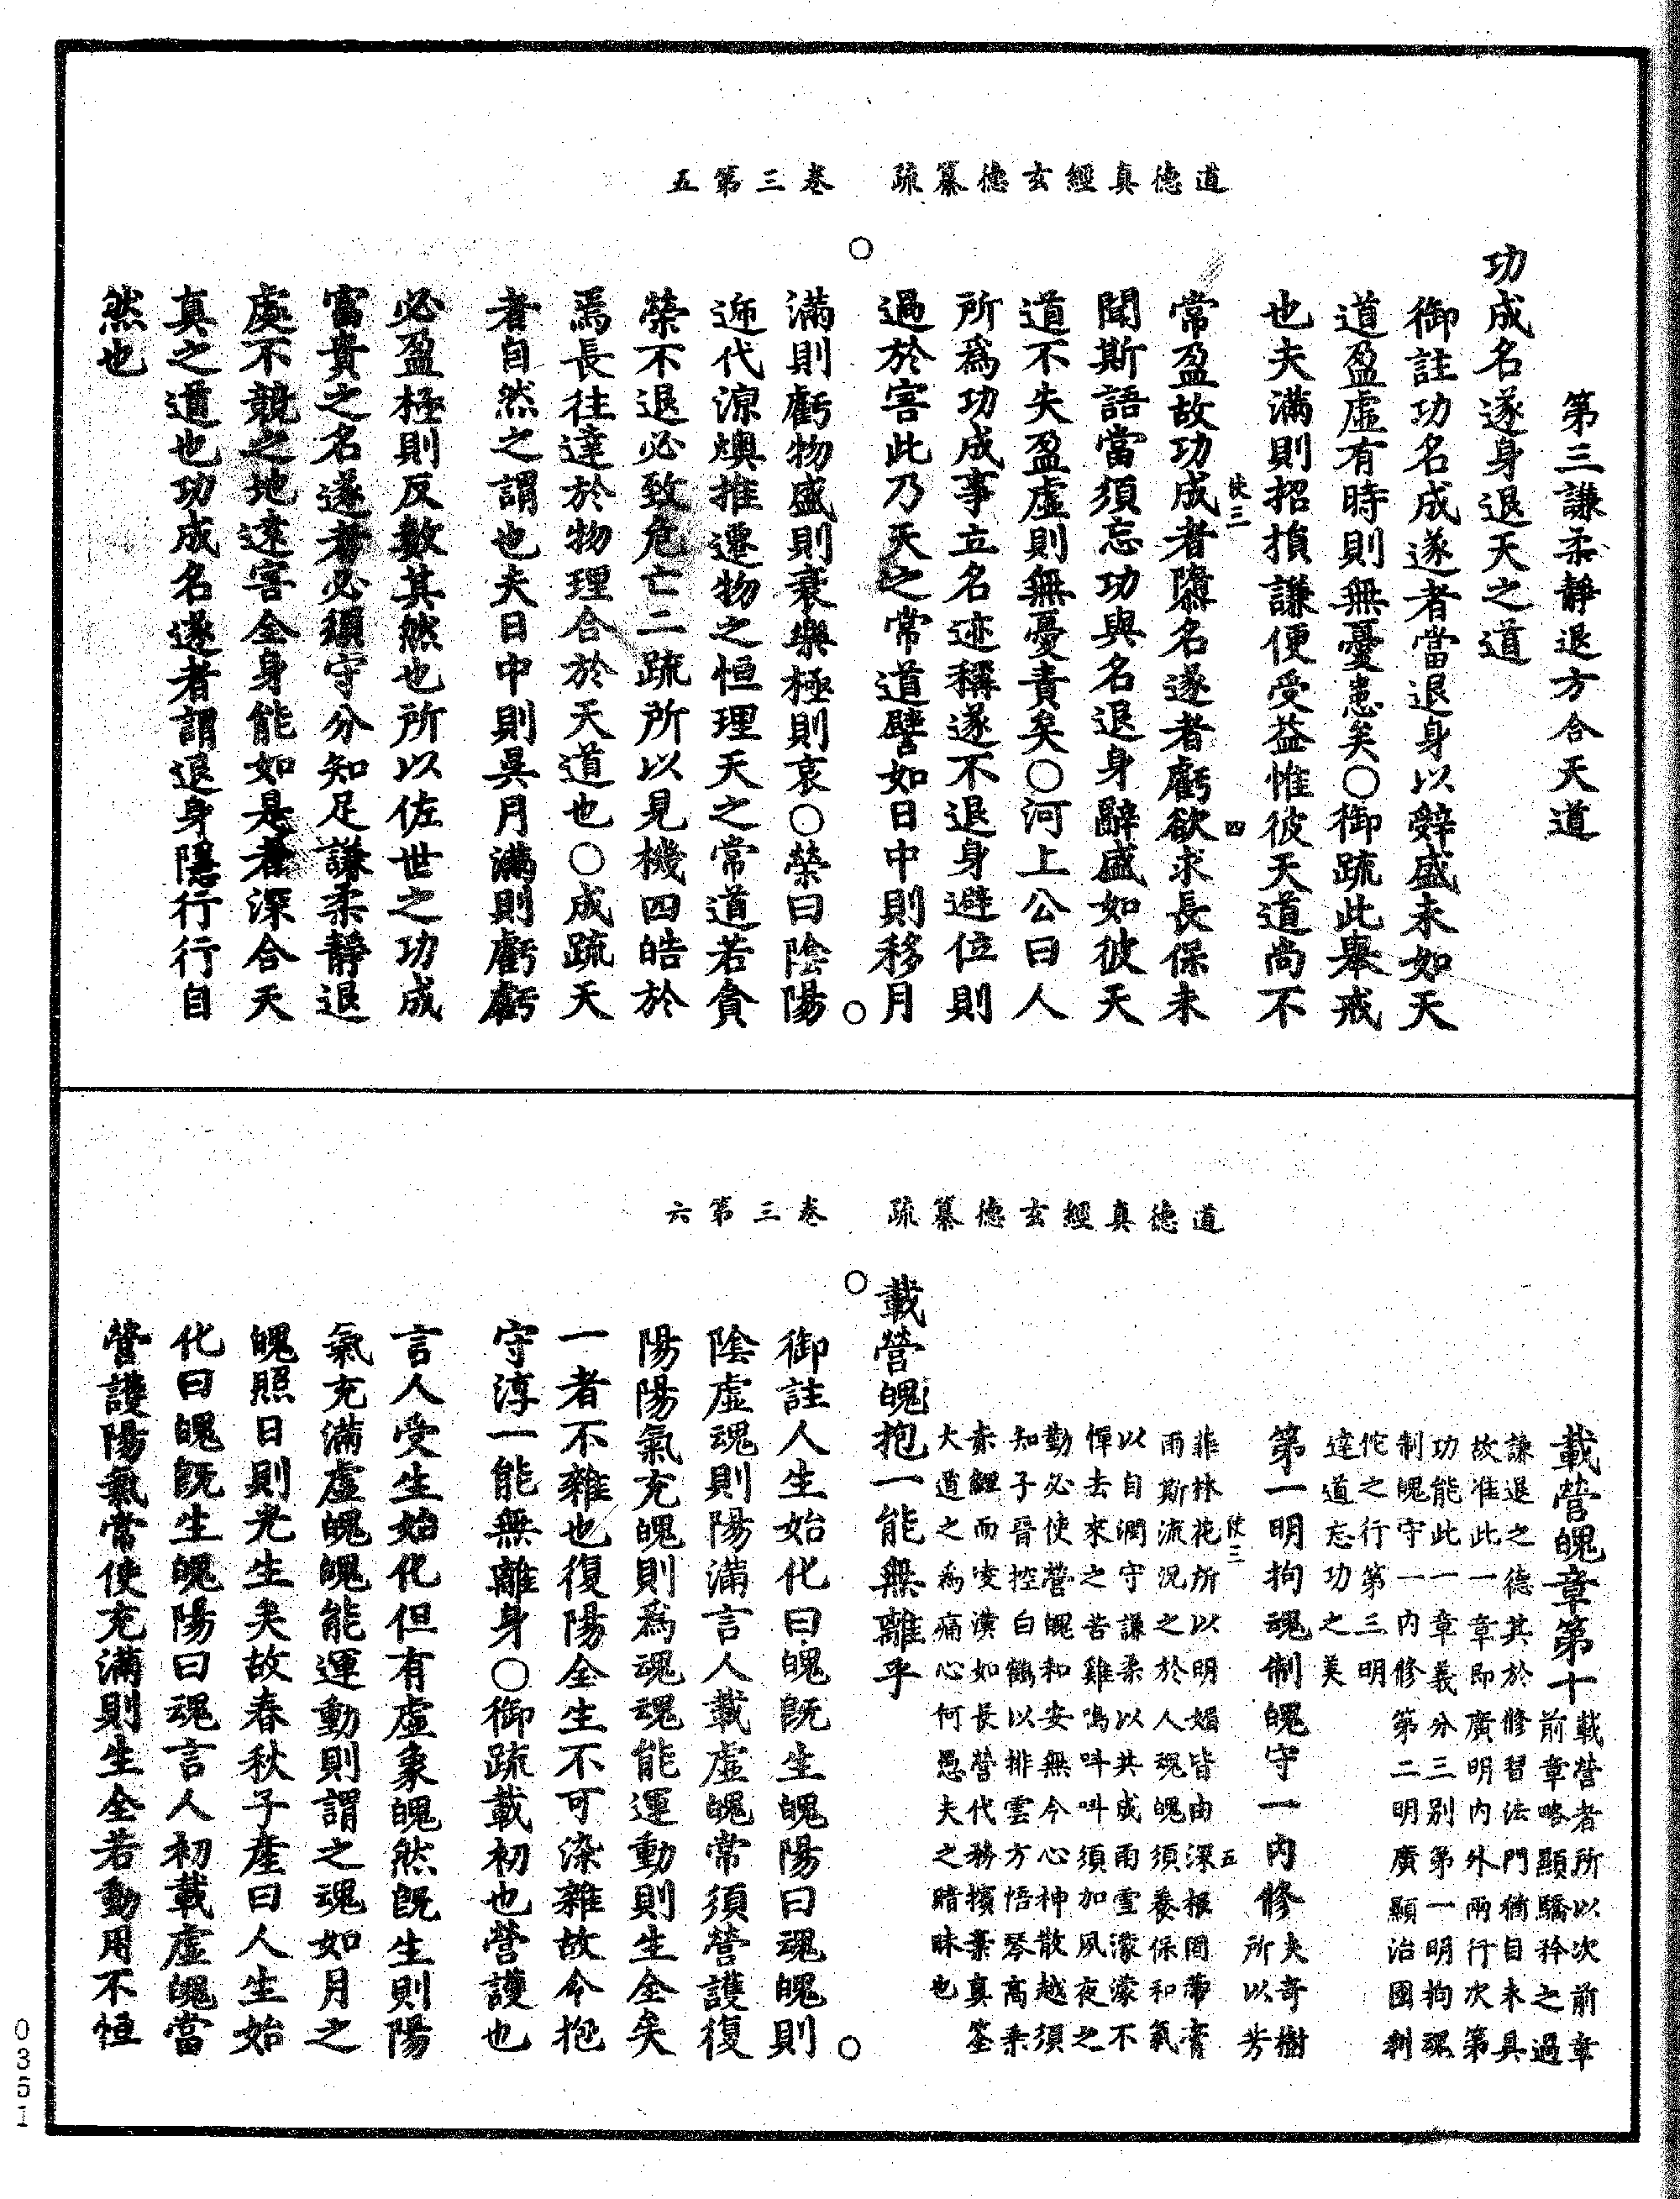 道德真經玄德纂疏　卷三第五
第三謙柔靜退方合天道
功成名遂身退天之道
御註功名成遂者當退身以辭盛未如天
道盈虛有時則無憂恚矣○御疏此舉戒
也夫滿則招損謙便受益惟彼天道尚不
使三　四
常盈故功成者隳名遂者虧欲求長保未
聞斯語當須忘功與名退身辭盛如彼天
道不失盈虛則無憂責矣○河上公曰人
所為功成事立名迹稱遂不退身避位則
過於害此乃天之常道譬如日中則移月
滿則虧物盛則衰樂極則哀○榮曰陰陽
遞代涼燠推遷物之恒理天之常道若貪
榮不退必致危亡二疏所以見機四皓於
焉長往達於物理合於天道也○成疏天
者自然之謂也夫日中則昃月滿則虧虧
必盈極則反數其然也所以佐世之功成
富貴之名遂者必須守分知足謙柔靜退
處不競之地遠害全身能如是者深合天
真之道也功成名遂者謂退身隱行行自
然也
道德真經玄德纂疏　卷三第六
載營魄章第十
載營者所以次前章
前章略顯驕矜之過
謙退之德其於修習法門猶自未具
故准此一章即廣明內外兩行次第
功能此一章義分三別第一明拘魂
制魄守一內修第二明廣顯治國利
佗之行第三明
達道忘功之美
第一明拘魂制魄守一內修
夫奇樹
所以芳
使三　五
菲林花所以明媚皆由深根固蒂膏
雨斯流況之於人魂魄須養保和氣
以自潤守謙柔以共成雨雪濛濛不
憚去來之苦雞鳴叫叫須加夙夜之
勤必使營魄和安無令心神散越須
知子晉控白鶴以排雲方悟琴高乘
素鯉而凌漢如長營代務擯棄真筌
大道之為痛心何愚夫之暗昧也
載營魄抱一能無離乎
御註人生始化曰魄既生魄陽曰魂魄則
陰虛魂則陽滿言人載虛魄常須營護復
陽陽氣充魄則為魂魂能運動則生全矣
一者不雜也復陽全生不可染雜故令抱
守淳一能無離身○御疏載初也營護也
言人受生始化但有虛象魄然既生則陽
氣充滿虛魄魄能運動則謂之魂如月之
魄照日則光生矣故春秋子產曰人生始
化曰魄既生魄陽曰魂言人初載虛魄當
營護陽氣常使充滿則生全若動用不恒
0351